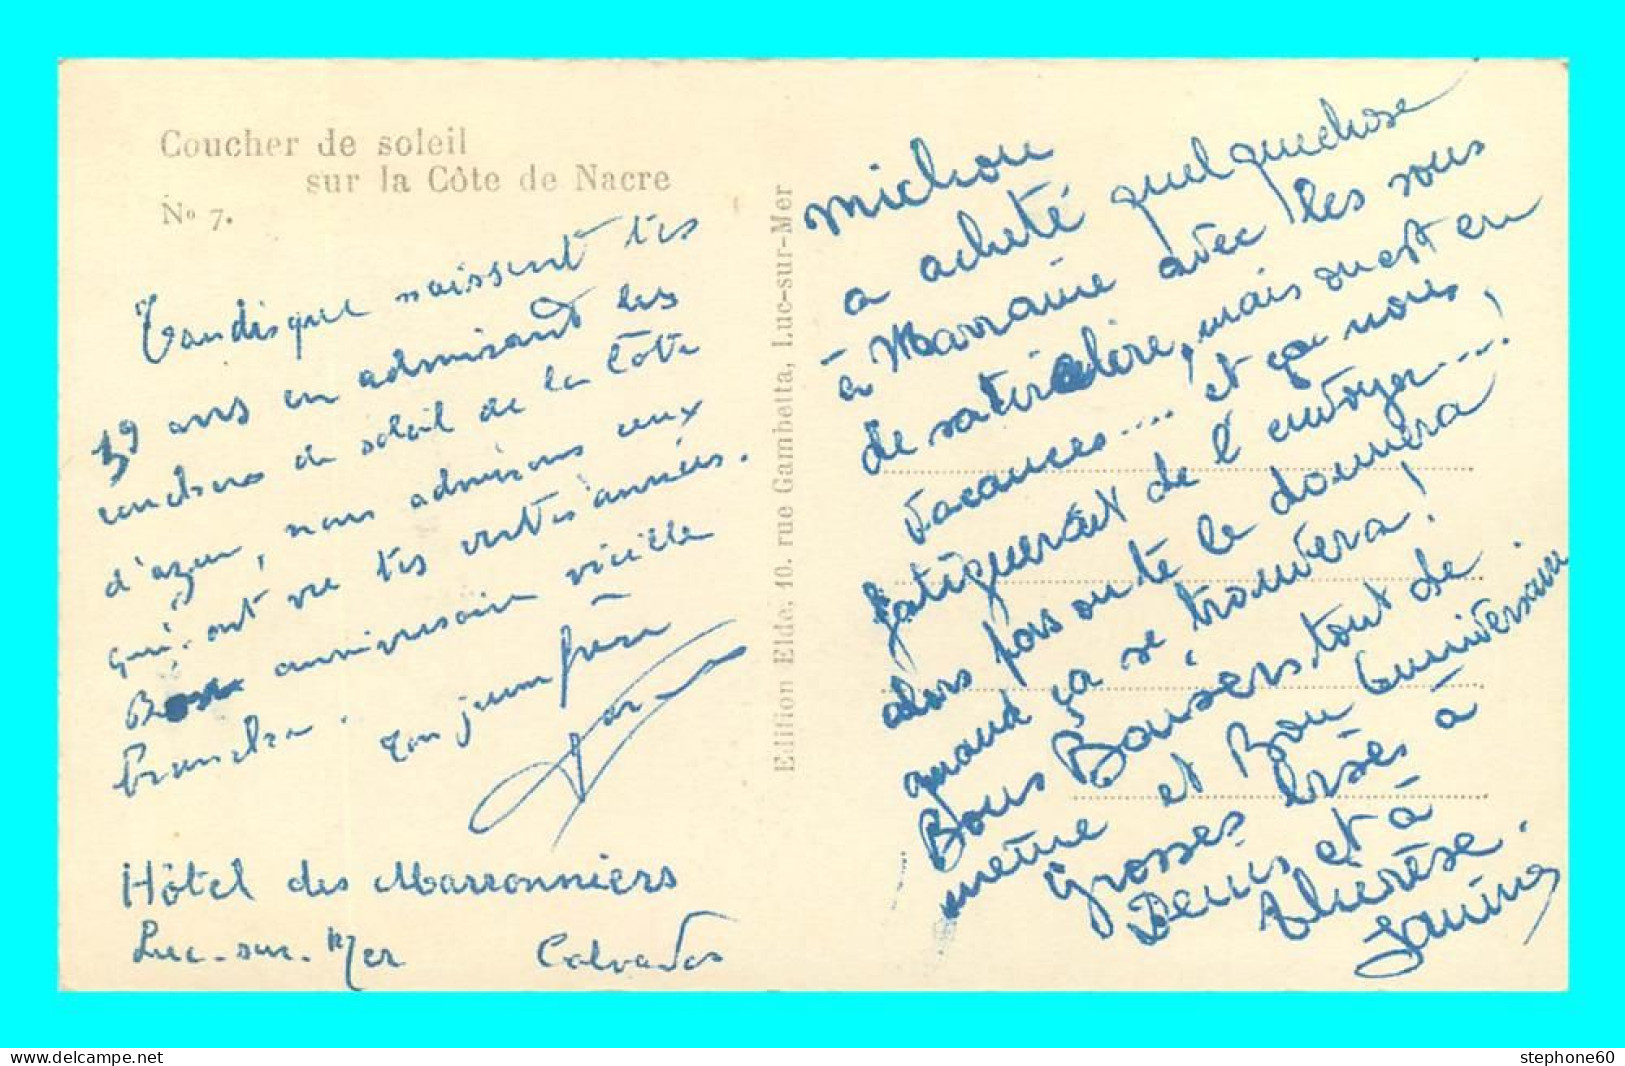 Coucher de soleil
sur la Côte de Nacre
No 7.
Tandisque naissent tes
39 ans en admirant les
couchers de soleil de la Côte
d'azur, nous admirons ceux
qui ont vu tes vertes années.
Bon anniversaire vieille
branche. Ton jeune frère
Hôtel des Marronniers
Luc-sur-Mer Calvados
Edition Elda, 10, rue Gambetta, Luc-sur-Mer
Michou
a acheté quelquechose
à Marraine avec les sous
de sa tirelire, mais on est en
vacances.... et ça nous
fatiguerait de l'envoyer....!
alors pas on te le donnera
quand ça se trouvera!
Bons Baisers tout de
même et Bon Anniversaire
Grosses bises à
Denis et à
Thérèse.
Janine
delcampe.net
stephone60